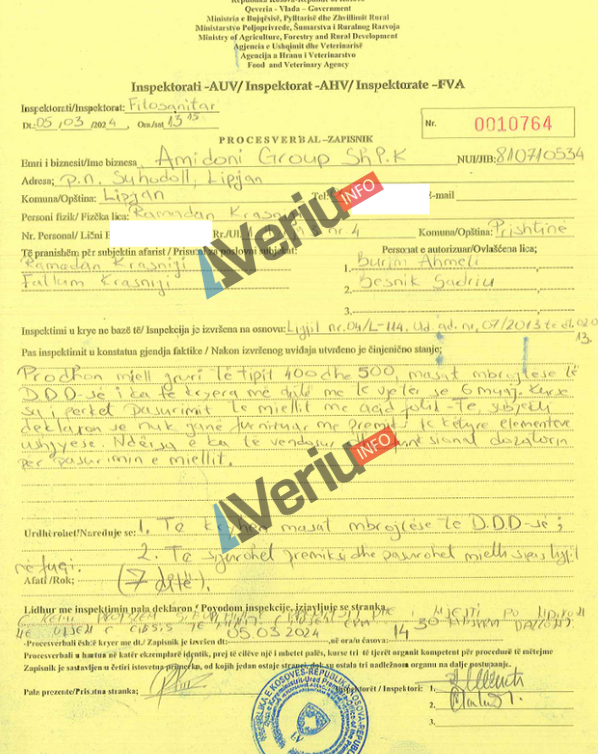 Qeveria - Vlada - Government
Ministria e Bujqësisë, Pylltarisë dhe Zhvillimit Rural
Ministarstvo Poljoprivrede, Šumarstva i Ruralnog Razvoja
Ministry of Agriculture, Forestry and Rural Development
Agjencia e Ushqimit dhe Veterinarisë
Agencija o Hranu i Veterinarstvo
Food and Veterinary Agency
Inspektorati -AUV/ Inspektorat -AHV/ Inspektorate -FVA
Inspektorati/Inspektorat: Fitosanitar
Dt. 05 / 03 /2024, Ora/sat 13 15
Nr. 0010764
PROCESVERBAL -ZAPISNIK
Emri i biznesit/Ime biznesa Amidoni Group ShP.K NUI/JIB: 810710534
Adresa; p.n. Suhodoll, Lipjan
Komuna/Opština: Lipjan Tel: E-mail
Personi fizik/ Fizička lica: Ramadan
Nr. Personal/ Lični Rr./Ul. nr. 4 Komuna/Opština: Prishtinë
Të pranishëm për subjektin afarist / za poslovni subjekat: Personat e autorizuar/Ovlašćena lica;
Ramadan Krasniqi 1. Burim Ahmeti
Krasniqi 2. Besnik Sadriu
3.
Inspektimi u krye në bazë të/ Inspekcija je izvršena na osnovu: Ligjit nr. 04/L-114. Ud. ad. nr. 07/2013
13.
Pas inspektimit u konstatua gjendja faktike / Nakon izvršenog uviđaja utvrđeno je činjenično stanje;
Prodhon miell gruri të tipit 400 dhe 500, masat mbrojtëse të
DDD-së i ka të kryera me datë me të vjetër se 6 muaj. Kurse
sa i përket pasurimit të miellit me acid folik-Fe, subjekti
deklaron se nuk janë furnizuar me premiks të këtyre elementeve
ushqyese. Ndërsa e ka të vendosur dozatorin
për pasurimin e miellit.
Urdhërohet/Naređuje se: 1. Të kryhen masat mbrojtëse të D.D.D-së;
2. Të sigurohet premiksi dhe pasurohet mielli sipas ligjit
në fuqi.
Afati /Rok; (7 ditë).
Lidhur me inspektimin pala deklaron / Povodom inspekcije, izjavljuje se stranka,
Procesverbali është kryer me dt./ Zapisnik je izvršen dt: 05.03.2024, në ora/u časova: 14 30
Procesverbali u hartua në katër ekzemplarë identik, prej të cilëve një i mbetet palës, kurse tri të tjerët organit kompetent për procedurë të mëtejme
Zapisnik je sastavljen u četiri istovetna primerka, od kojih jedan ostaje stranci dok su ostala tri nadležnom organu na dalje postupanje.
Pala prezente/Prisutna stranka; Inspektorët / Inspektori: 1.
2.
3.
AVeriu INFO
AVeriu INFO